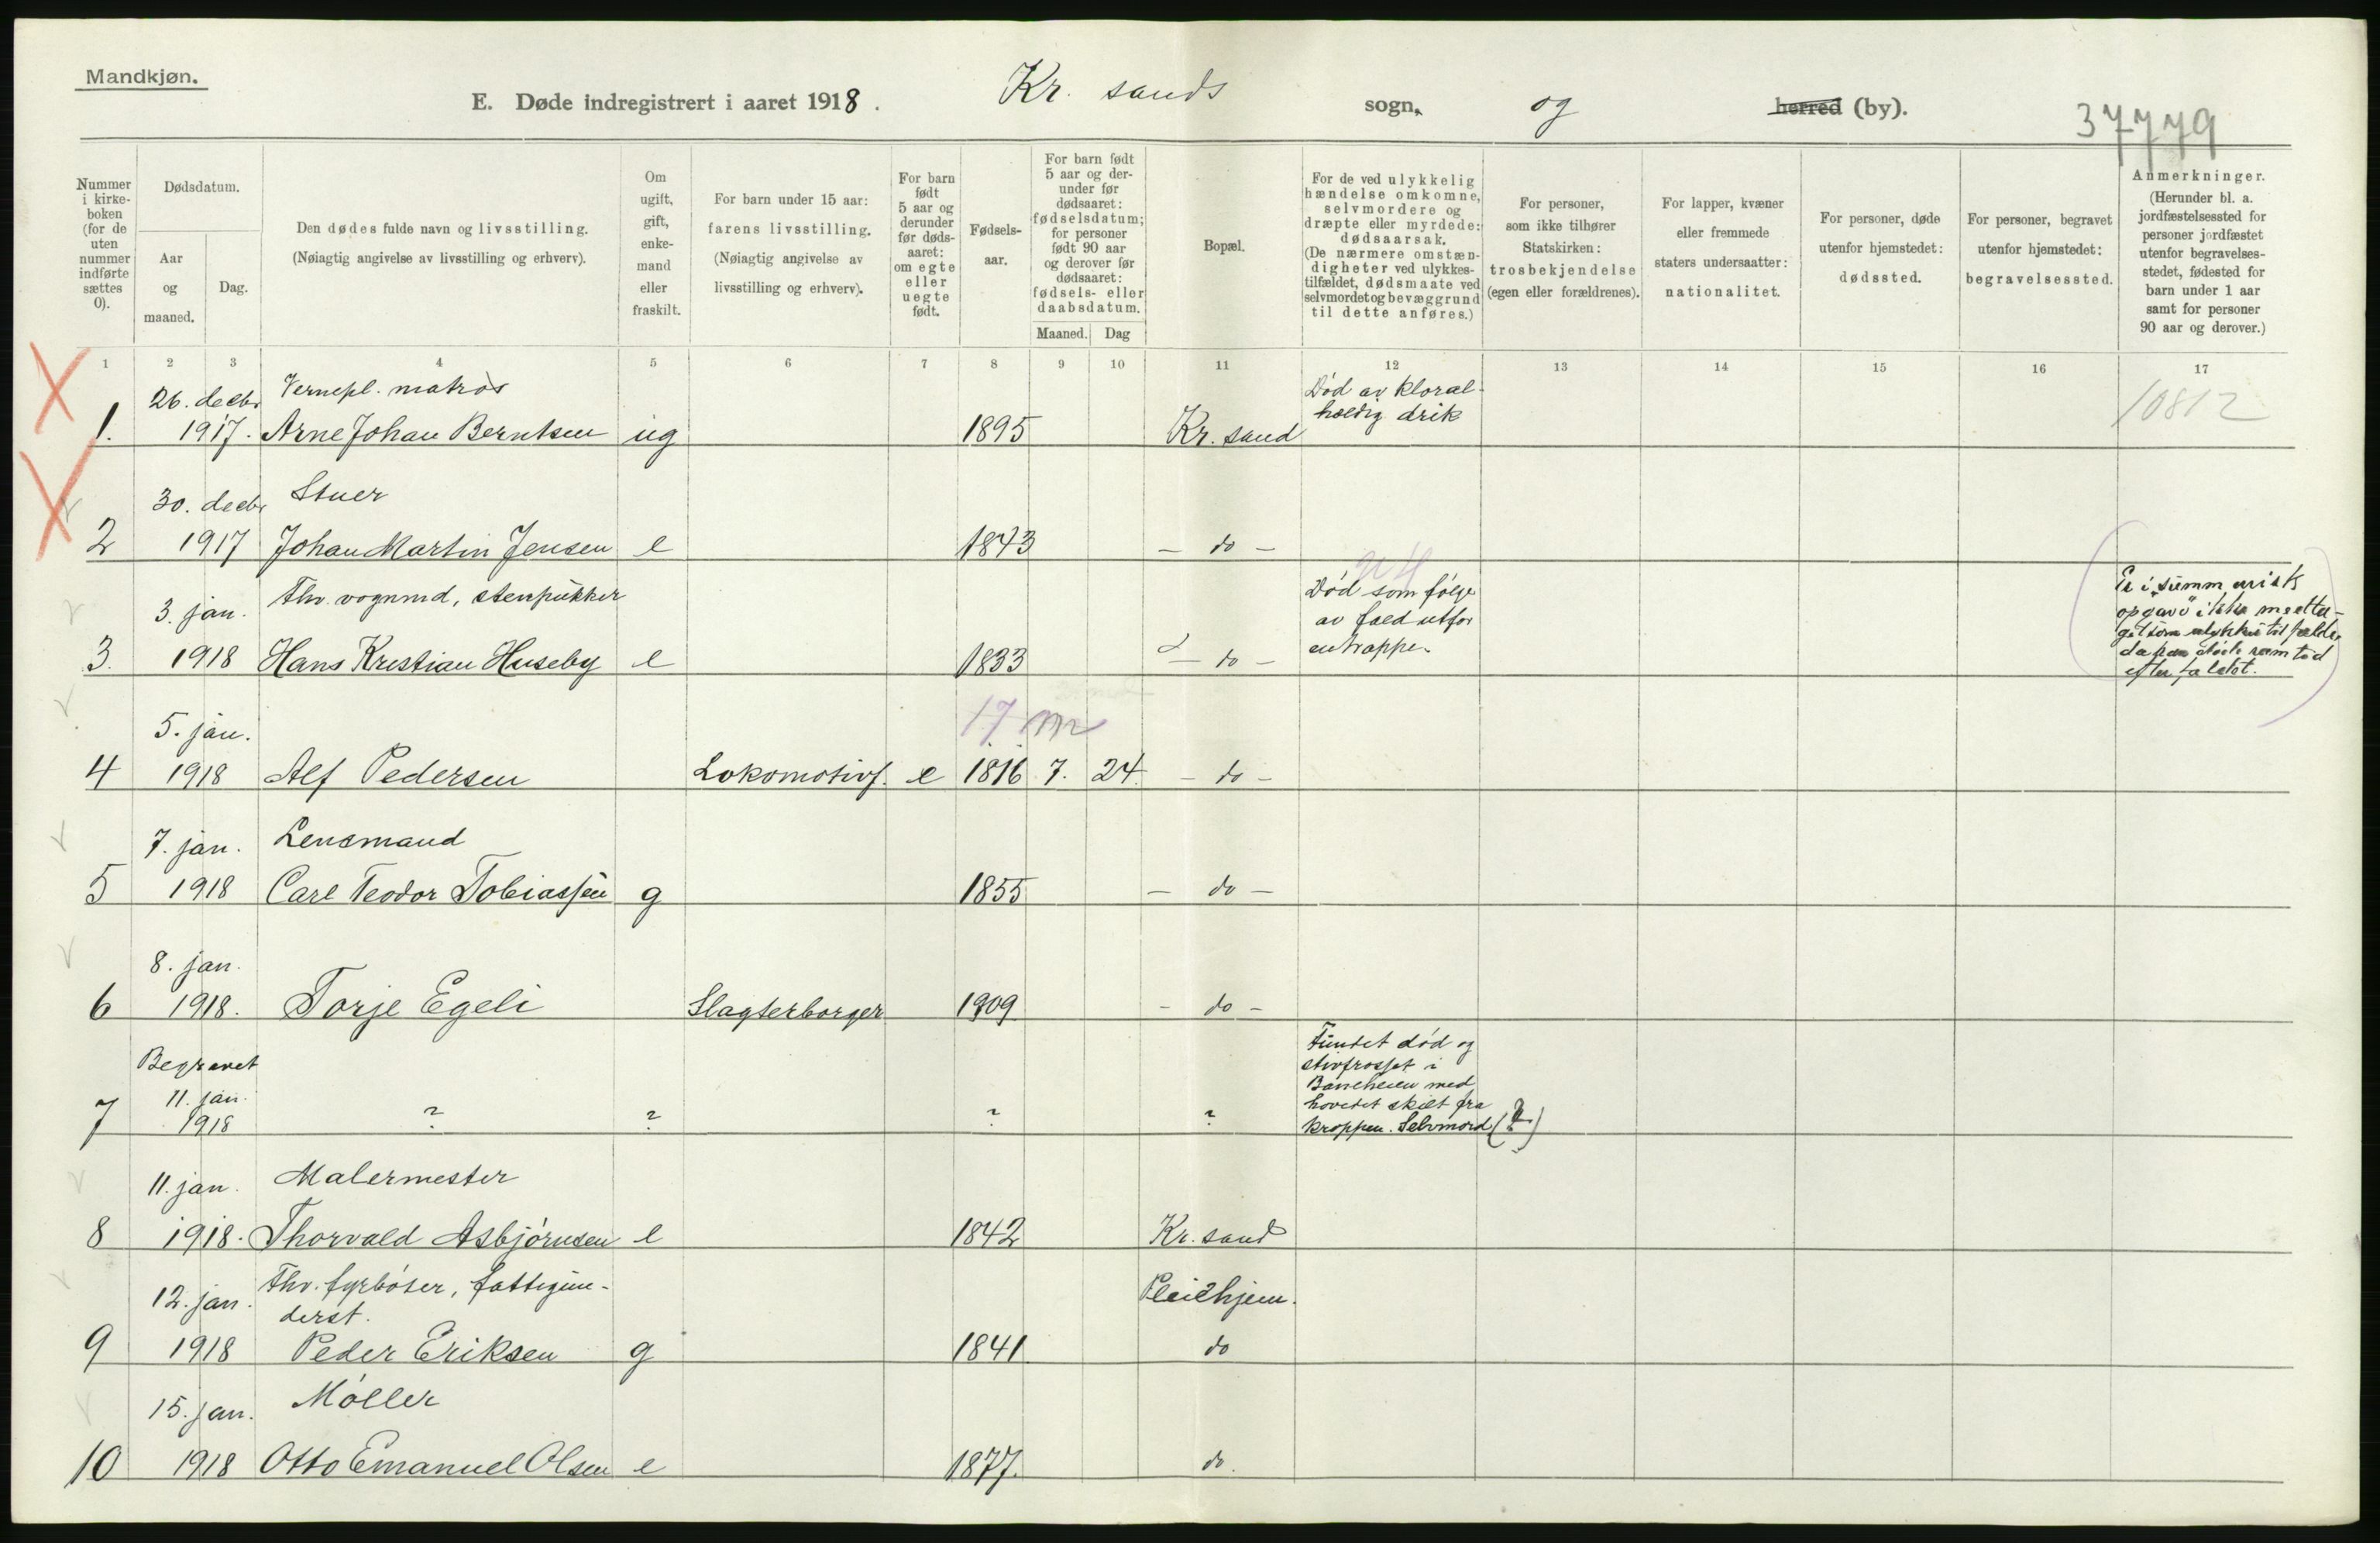 Mandkjøn.
E. Døde indregistrert i aaret 1918.
Kr. sands sogn, og herred (by).
37779
Nummer i kirkeboken (for de uten nummer indførte sættes 0).
Dødsdatum.
Aar og maaned.
Dag.
Den dødes fulde navn og livsstilling.
(Nøiagtig angivelse av livsstilling og erhverv).
Om ugift, gift, enkemand eller fraskilt.
For barn under 15 aar: farens livsstilling.
(Nøiagtig angivelse av livsstilling og erhverv).
For barn født 5 aar og derunder før dødsaaret: om egte eller uegte født.
Fødselsaar.
For barn født 5 aar og derunder før dødsaaret: fødselsdatum; for personer født 90 aar og derover før dødsaaret: fødsels- eller daabsdatum.
Maaned.
Dag
Bopæl.
For de ved ulykkelig hændelse omkomne, selvmordere og dræpte eller myrdede: dødsaarsak.
(De nærmere omstændigheter ved ulykkestilfældet, dødsmaate ved selvmordet og bevæggrund til dette anføres.)
For personer, som ikke tilhører Statskirken: trosbekjendelse (egen eller forældrenes).
For lapper, kvæner eller fremmede staters undersaatter: nationalitet.
For personer, døde utenfor hjemstedet: dødssted.
For personer, begravet utenfor hjemstedet: begravelsessted.
Anmerkninger.
(Herunder bl. a. jordfæstelsessted for personer jordfæstet utenfor begravelsesstedet, fødested for barn under 1 aar samt for personer 90 aar og derover.)
1 2 3 4 5 6 7 8 9 10 11 12 13 14 15 16 17
26. decbr Vernepl. matros Død av kloral-
holdig drik
1. 1917. Arne Johan Berntsen ug 1895 Kr. sand 10812
30. decbr Stuer
2 1917 Johan Martin Jensen e 1843 - do -
3. jan. Fhv. vognmd, stenpukker Død som følge
av fald utfor
en trappe.
3. 1918 Hans Kristian Huseby e 1833 - do -
Er i "summarisk
opgave" ikke medta-
get som ulykkestilfælde,
da han døde nom tid
efter faldet.
17 m
5. jan.
4 1918 Alf Pedersen Lokomotivf. e 1816 7. 24. - do -
7. jan. Lensmand
5 1918 Carl Teodor Tobiassen g 1855 - do -
8. jan.
6 1918. Torje Egeli Slagterborger 1909 - do -
Begravet
11. jan.
7 1918 ? ? ? ?
Fundet død og
stivfrosset i
Baneheien med
hovedet skilt fra
kroppen. Selvmord (?)
11. jan. Malermester
8 1918. Thorvald Asbjørnsen e 1842 Kr. sand
12. jan. Fhv. fyrbøter, fattigun-
derst. Pleiehjem.
9 1918 Peder Eriksen g 1841 do
15. jan. Møller
10 1918 Otto Emanuel Olsen e 1877. do.